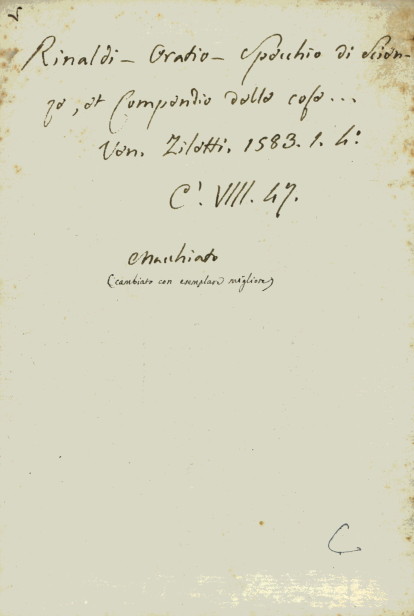 Rinaldi - Oratio - Specchio di Scien-
ze, et Compendio delle cose...
Ven. Ziletti. 1583. 1. 4.º
C'. VIII. 47.
Macchiato
(cambiato con esemplare migliore)
C